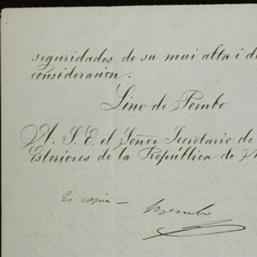 seguridades de su mui alta i d
consideración.
Lino de Pombo
A. S. E. el Señor Secretario de
Esteriores de la República de
Es copia — Pombo